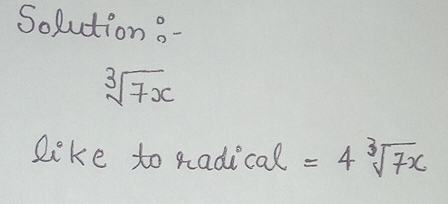 Solution :-
∛7x
like to radical = 4 ∛7x